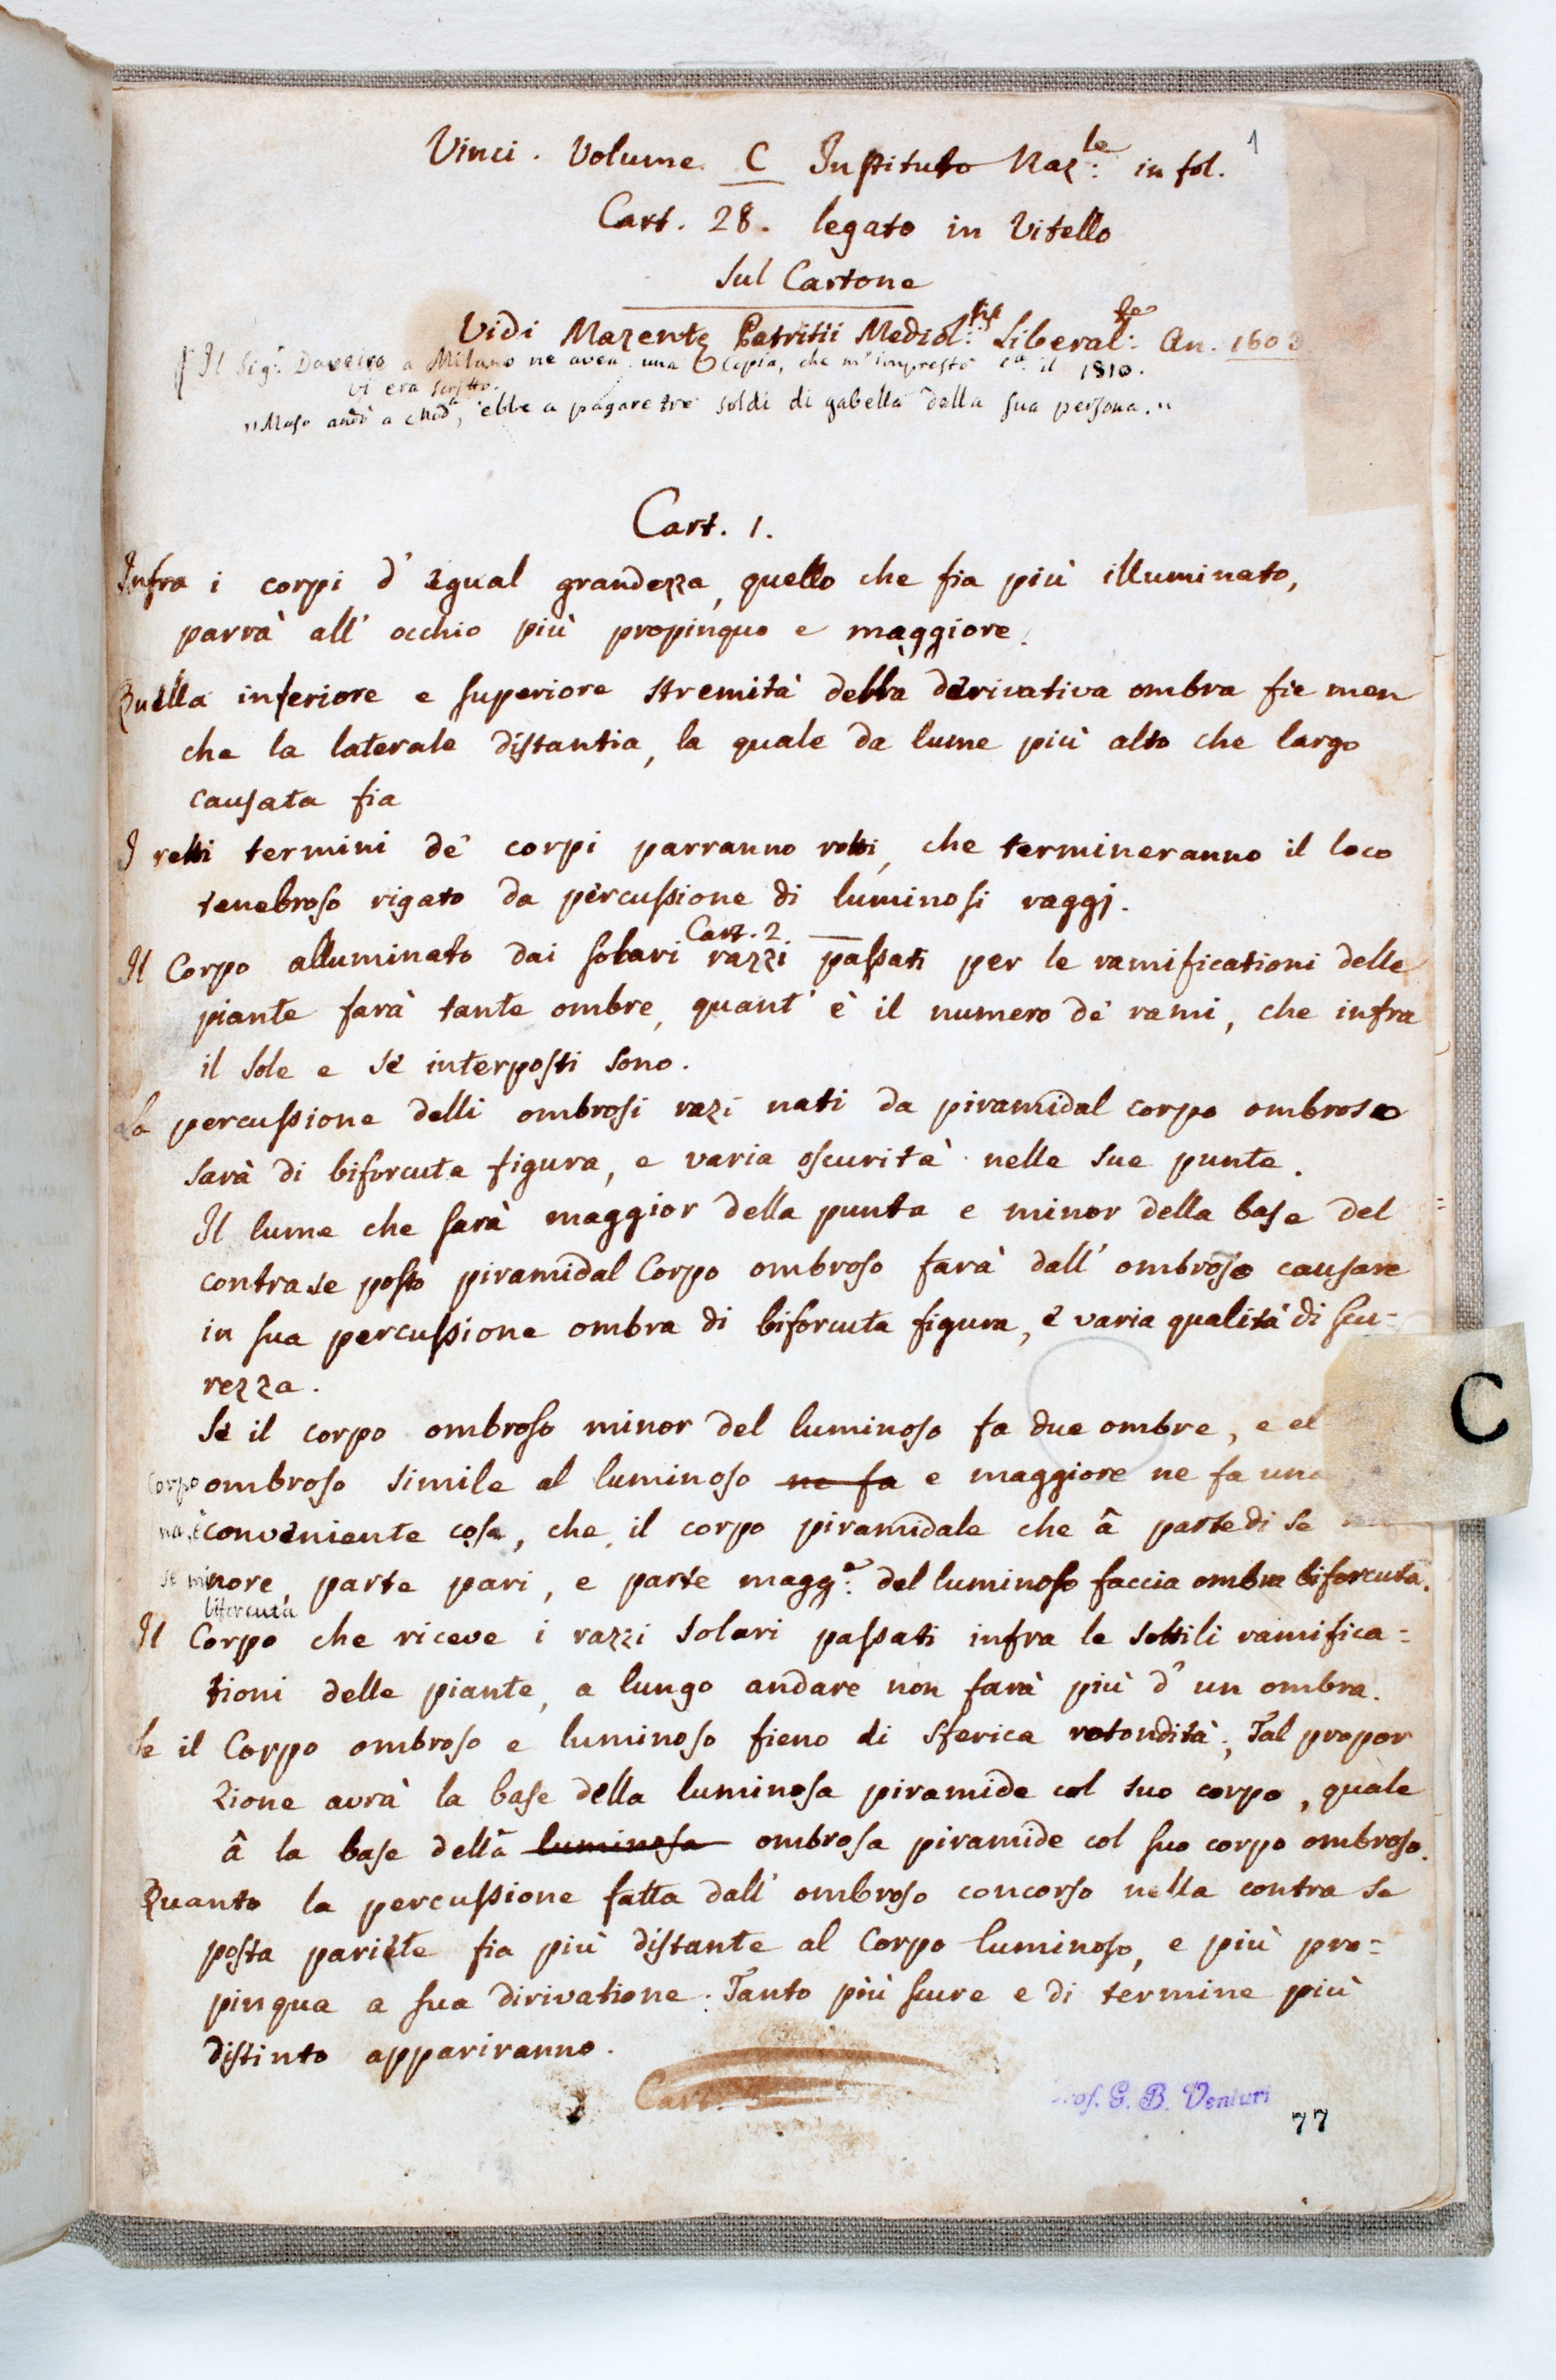 1
Vinci. Volume C Instituto Naz:le in fol.
Cart. 28. legato in Vitello
sul Cartone
Vidi Mazente Petritii Mediol: Liberal: An. 1603
Il Sig: a Milano ne avea una Copia, che m'imprestò il 1810.
Vi era scritto.
"Maso andò a , ebbe a pagare tre soldi di gabella della sua persona."
Cart. 1.
Infra i corpi d'egual grandezza, quello che fia più illuminato,
parrà all'occhio più propinquo e maggiore.
Quella inferiore e superiore stremità della derivativa ombra fie men
che la laterale distantia, la quale da lume più alto che largo
causata fia
I retti termini de' corpi parranno rotti, che termineranno il loco
tenebroso rigato da percussione di luminosi raggj.
Cart. 2.
Il Corpo alluminato dai solari razzi passati per le ramificationi delle
piante farà tante ombre, quant'è il numero de' rami, che infra
il sole e se interposti sono.
La percussione delli ombrosi razi nati da piramidal corpo ombroso
sarà di biforcuta figura, e varia oscurità nelle sue punte.
Il lume che sarà maggior della punta e minor della base del
contrase posto piramidal Corpo ombroso farà dall'ombroso causare
in sua percussione ombra di biforcuta figura, e varia qualità di scu=
rezza.
Se il corpo ombroso minor del luminoso fa due ombre, e el
corpo ombroso simile al luminoso ne fa e maggiore ne fa una
conveniente cosa, che il corpo piramidale che â parte di se
minore, parte pari, e parte magg:e del luminoso faccia ombra biforcuta.
biforcuta
Il Corpo che riceve i razzi solari passati infra le sottili ramifica=
tioni delle piante, a lungo andare non farà più d'un ombra.
Se il Corpo ombroso e luminoso fieno di sferica rotondità, Tal propor
zione avrà la base della luminosa piramide col suo corpo, quale
â la base della luminosa ombrosa piramide col suo corpo ombroso.
Quanto la percussione fatta dall'ombroso concorso nella contra se
posta pariete fia più distante al Corpo luminoso, e più pro=
pinqua a sua dirivatione. Tanto più scure e di termine più
distinto appariranno.
Cart. 3
Prof. G. B. Venturi
77
C